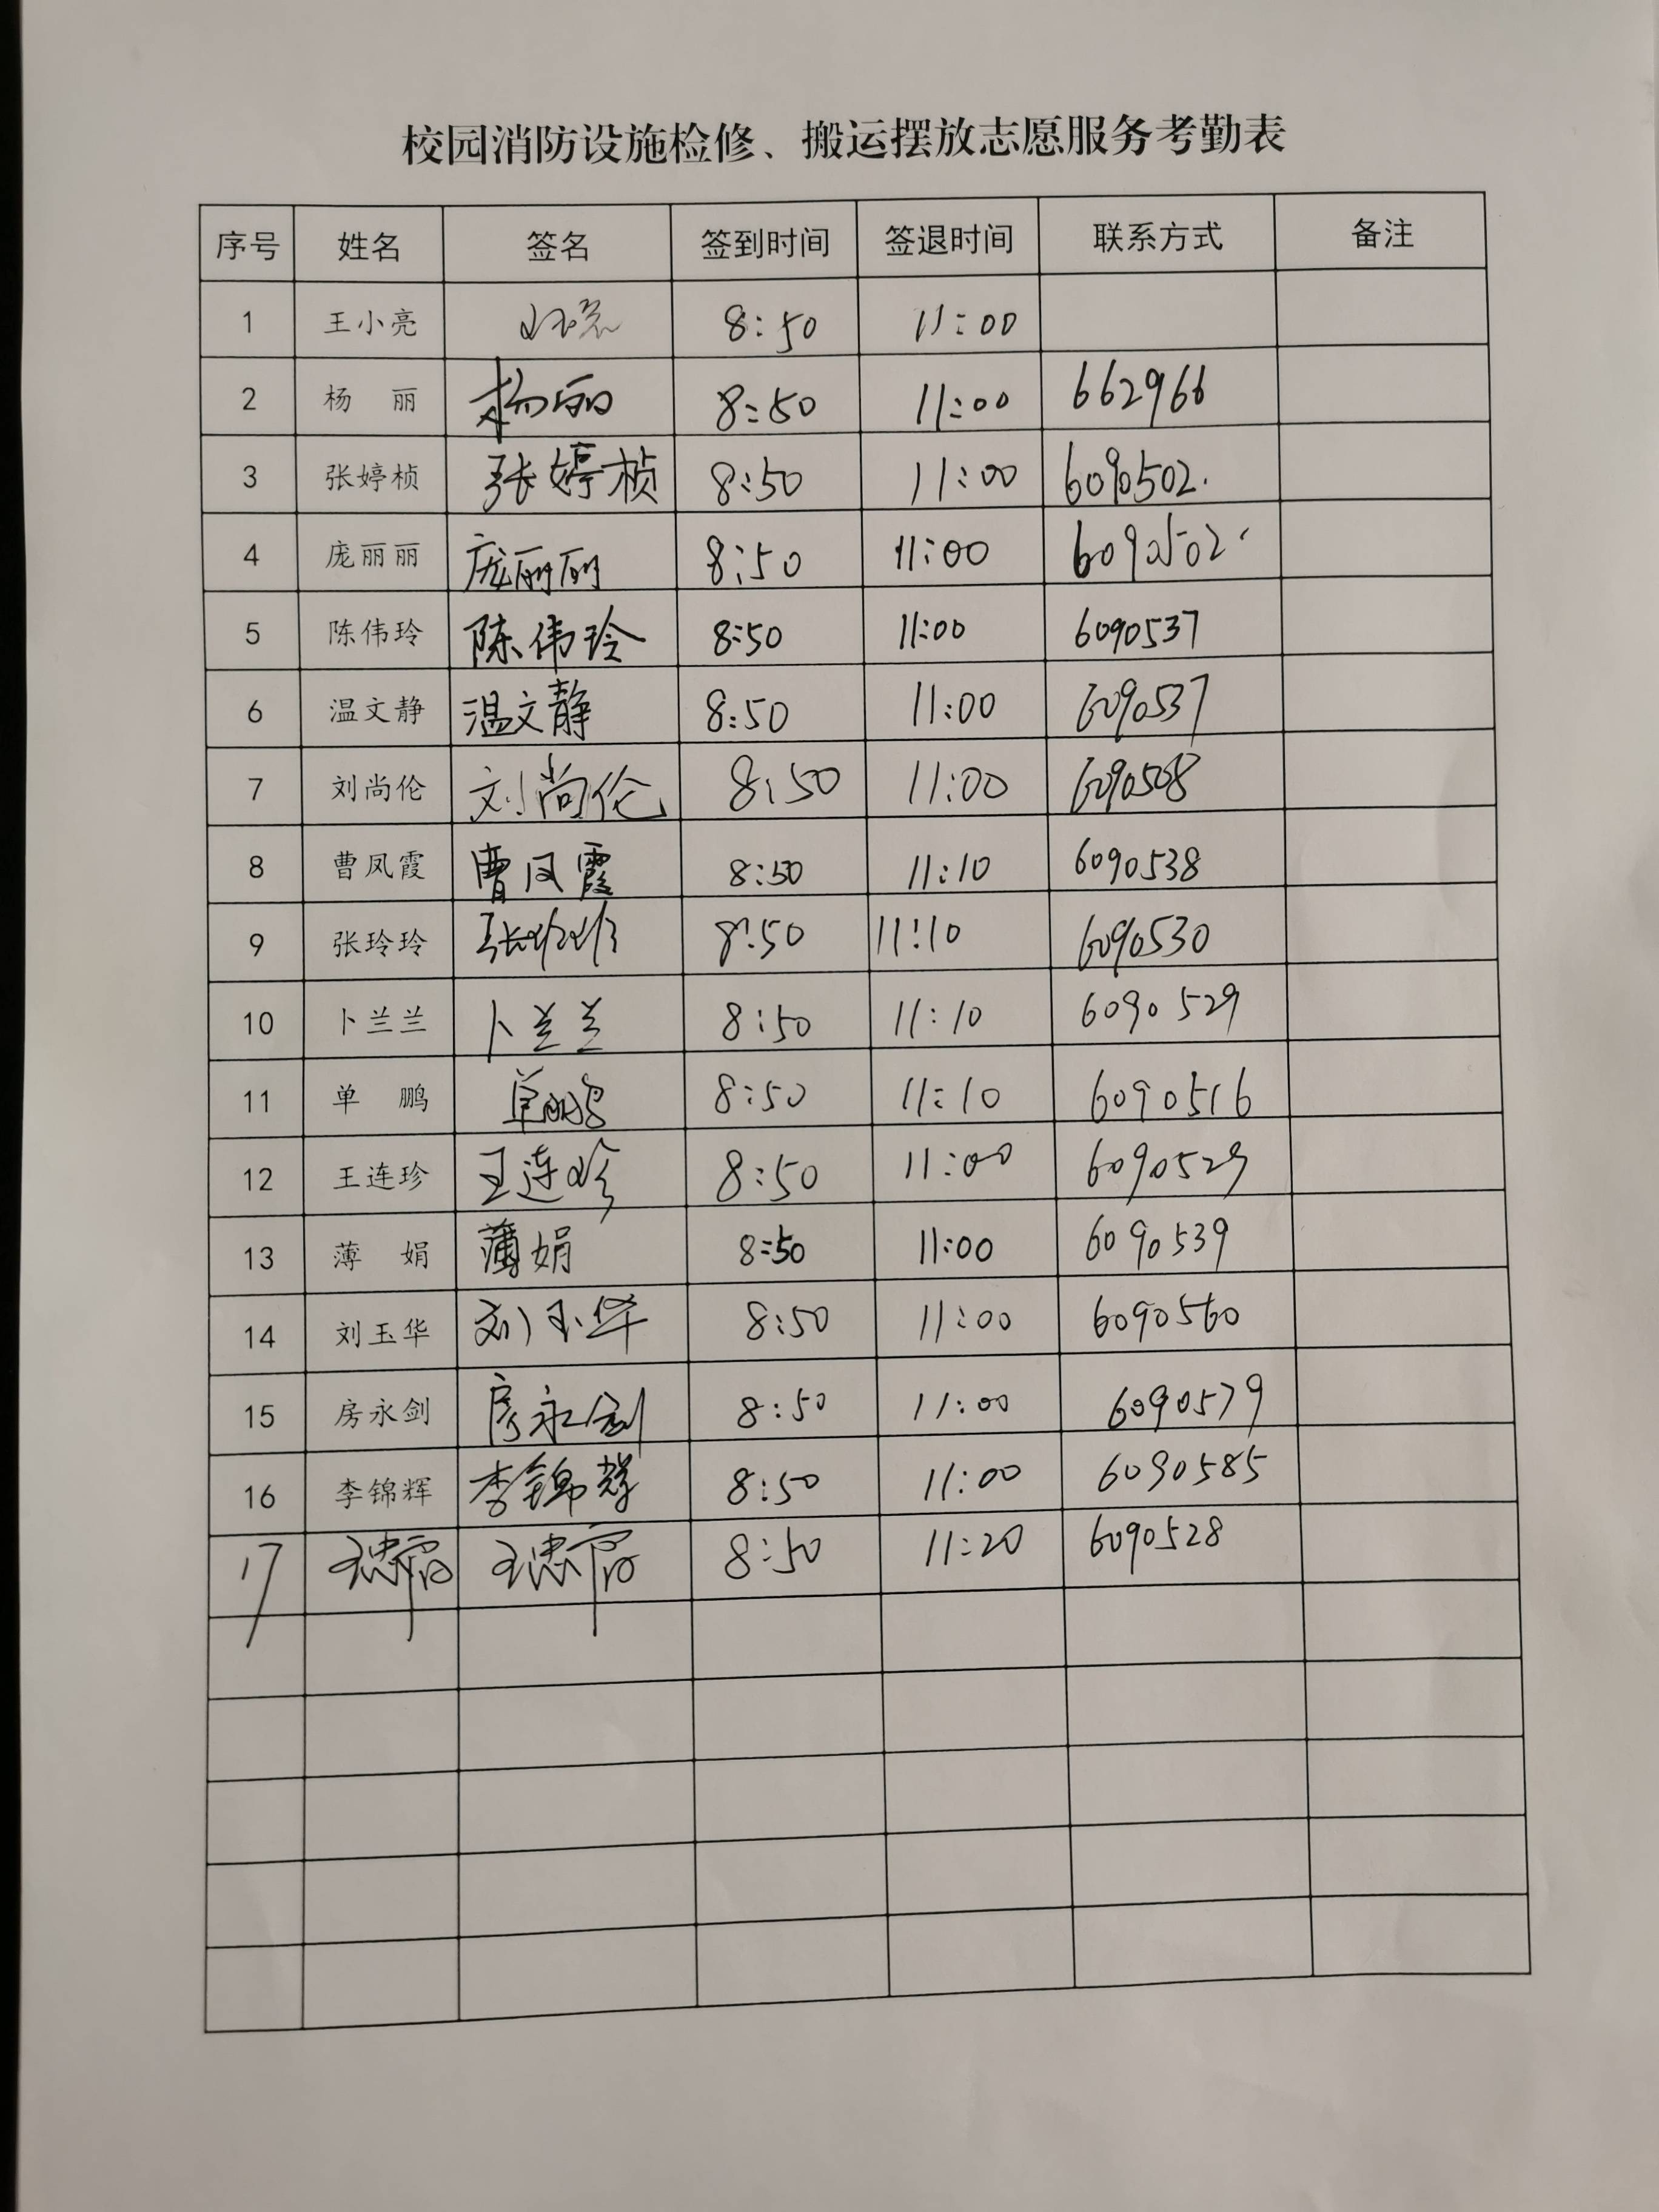 校园消防设施检修、搬运摆放志愿服务考勤表
序号 姓名 签名 签到时间 签退时间 联系方式 备注
1 王小亮 8:50 11:00
2 杨 丽 杨丽 8:50 11:00 662966
3 张婷桢 张婷桢 8:50 11:00 6090502.
4 庞丽丽 庞丽丽 8:50 11:00 6090502.
5 陈伟玲 陈伟玲 8:50 11:00 6090537
6 温文静 温文静 8:50 11:00 6090537
7 刘尚伦 刘尚伦 8:50 11:00 6090508
8 曹凤霞 曹凤霞 8:50 11:10 6090538
9 张玲玲 张玲玲 8:50 11:10 6090530
10 卜兰兰 卜兰兰 8:50 11:10 6090529
11 单 鹏 单鹏 8:50 11:10 6090516
12 王连珍 王连珍 8:50 11:00 6090529
13 薄 娟 薄娟 8:50 11:00 6090539
14 刘玉华 刘玉华 8:50 11:00 6090560
15 房永剑 房永剑 8:50 11:00 6090579
16 李锦辉 李锦辉 8:50 11:00 6090585
17 8:50 11:20 6090528